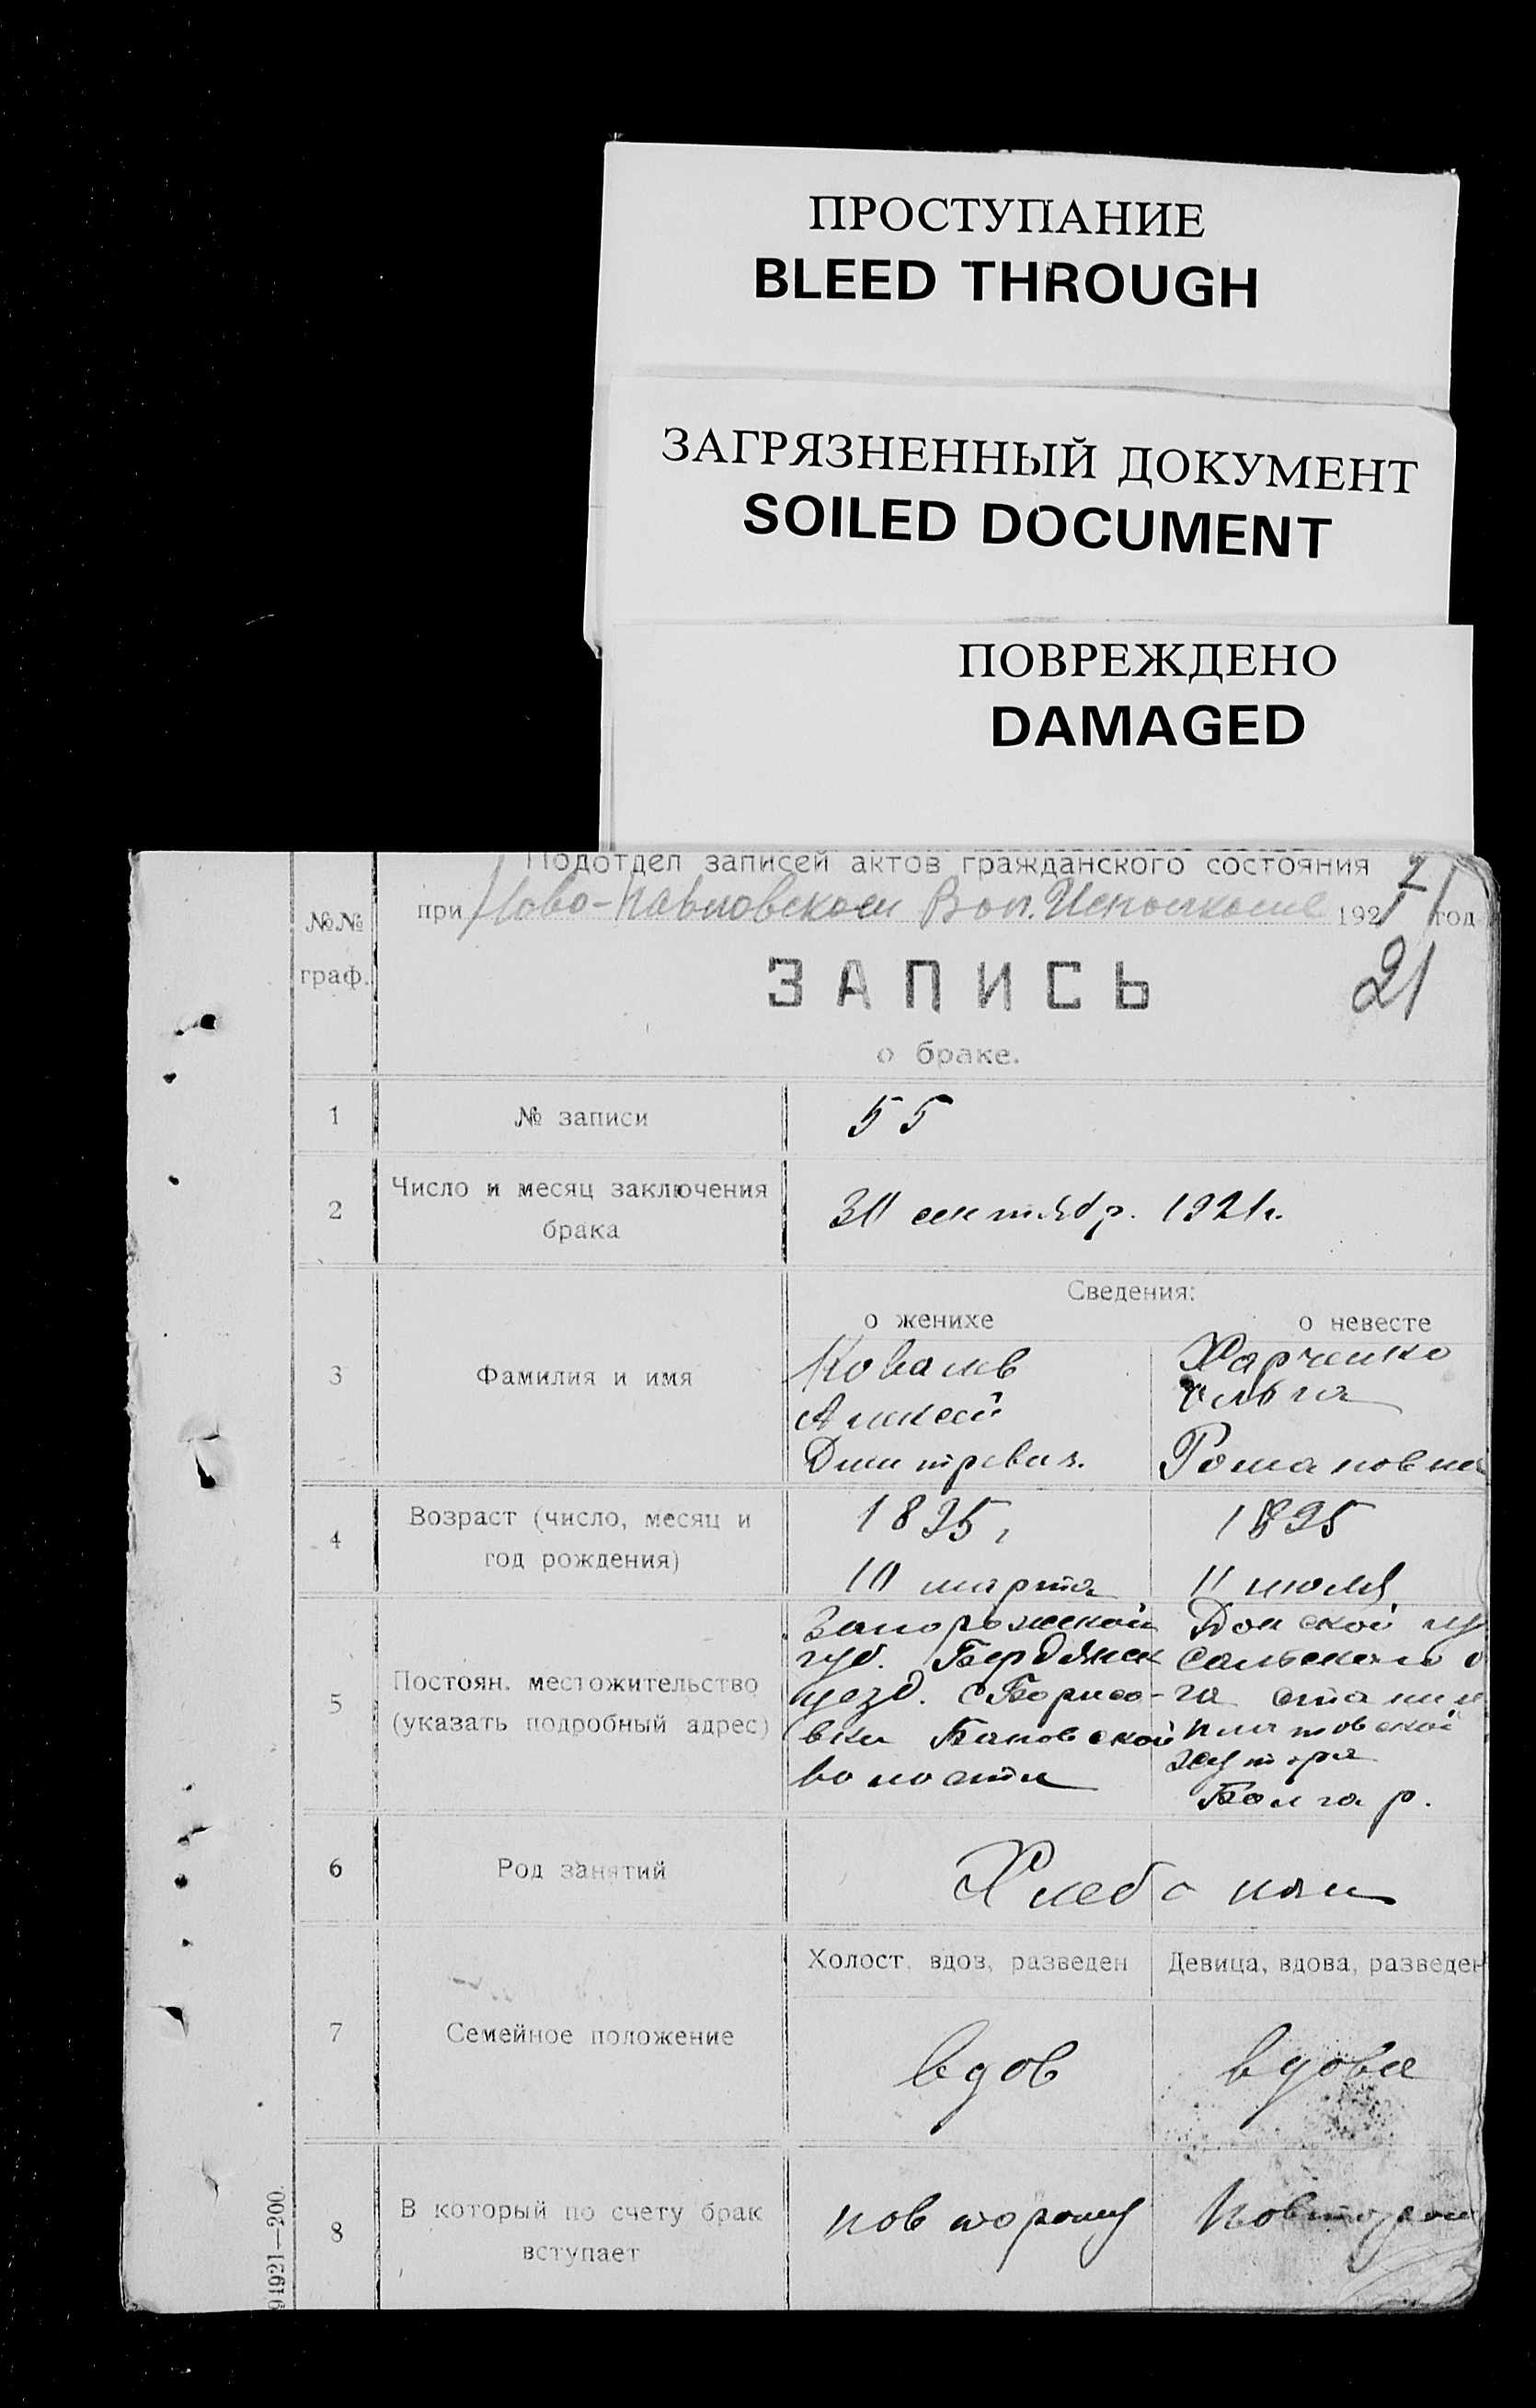 ПРОСТУПАНИЕ
BLEED THROUGH
ЗАГРЯЗНЕННЫЙ ДОКУМЕНТ
SOILED DOCUMENT
ПОВРЕЖДЕНО
DAMAGED
Подотдел записей актов гражданского состояния
при Ново-Павловском Вол. Исполкоме 1921 год
№№
граф.
ЗАПИСЬ
21
о браке.
1 № записи 55
2 Число и месяц заключения
брака
30 сентябр. 1921 г.
Сведения:
о женихе о невесте
3 Фамилия и имя
Коваль Харченко
Алексей Ольга
Дмитревич. Романовна
4 Возраст (число, месяц и
год рождения)
1895 г. 1895
10 марта 11 июля
5 Постоян. местожительство
(указать подробный адрес)
Запорожской
губ. Бердянск
уезд. с Борисо-
вки Бановской
волости
Донской
Сальского о
га станиц
Платовской
хутора
Болгар.
6 Род занятий Хлебопаш
7 Семейное положение
Холост, вдов, разведен Девица, вдова, разведен
вдов вдова
8 В который по счету брак
вступает
повторому Повтором
94921—200.